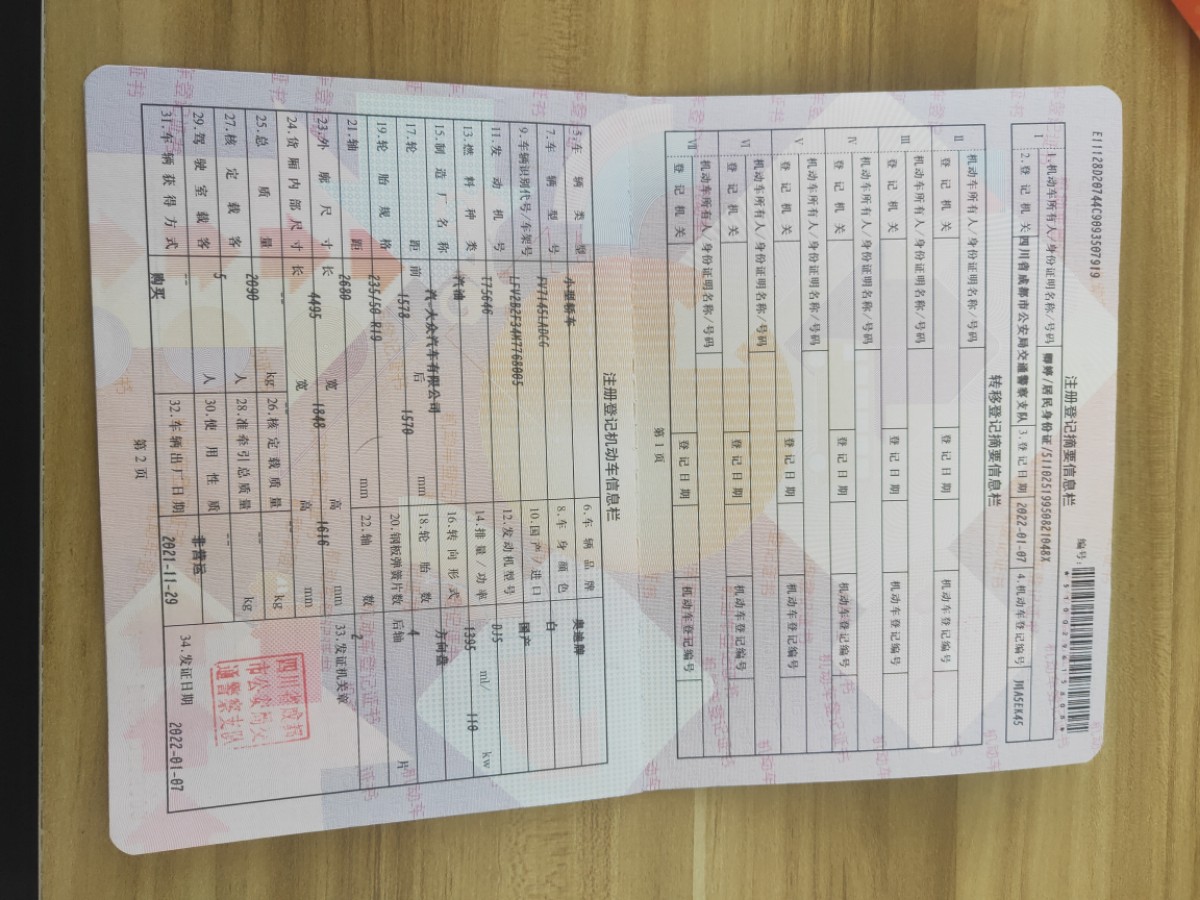 E11128D20744C9093507919
编号:
*510029615408*
注册登记摘要信息栏
Ⅰ 1.机动车所有人/身份证明名称/号码 卿婷/居民身份证/51102519950821048X
2.登记机关 四川省成都市公安局交通警察支队 3.登记日期 2022-01-07 4.机动车登记编号 川A5EK45
转移登记摘要信息栏
Ⅱ 机动车所有人/身份证明名称/号码
登记机关 登记日期 机动车登记编号
Ⅲ 机动车所有人/身份证明名称/号码
登记机关 登记日期 机动车登记编号
Ⅳ 机动车所有人/身份证明名称/号码
登记机关 登记日期 机动车登记编号
Ⅴ 机动车所有人/身份证明名称/号码
登记机关 登记日期 机动车登记编号
Ⅵ 机动车所有人/身份证明名称/号码
登记机关 登记日期 机动车登记编号
Ⅶ 机动车所有人/身份证明名称/号码
登记机关 登记日期 机动车登记编号
第 1 页
注册登记机动车信息栏
5.车辆类型 小型轿车 6.车辆品牌 奥迪牌
7.车辆型号 FV7145LADCG 8.车身颜色 白
9.车辆识别代号/车架号 LFV2B2F34M7768005 10.国产/进口 国产
11.发动机号 T75646 12.发动机型号 DJS
13.燃料种类 汽油 14.排量/功率 1395 ml/ 110 kw
15.制造厂名称 一汽-大众汽车有限公司 16.转向形式 方向盘
17.轮距 前 1578 后 1570 mm 18.轮胎数 4
19.轮胎规格 235/50 R19 20.钢板弹簧片数 后轴 片
21.轴距 2680 mm 22.轴数 2
23.外廓尺寸 长 4495 宽 1848 高 1616 mm 33.发证机关章
24.货厢内部尺寸 长 -- 宽 -- 高 -- mm
25.总质量 2090 kg 26.核定载质量 -- kg
27.核定载客 5 人 28.准牵引总质量 -- kg
29.驾驶室载客 -- 人 30.使用性质 非营运
31.车辆获得方式 购买 32.车辆出厂日期 2021-11-29 34.发证日期 2022-01-07
四川省成都
市公安局交
通警察支队
第 2 页